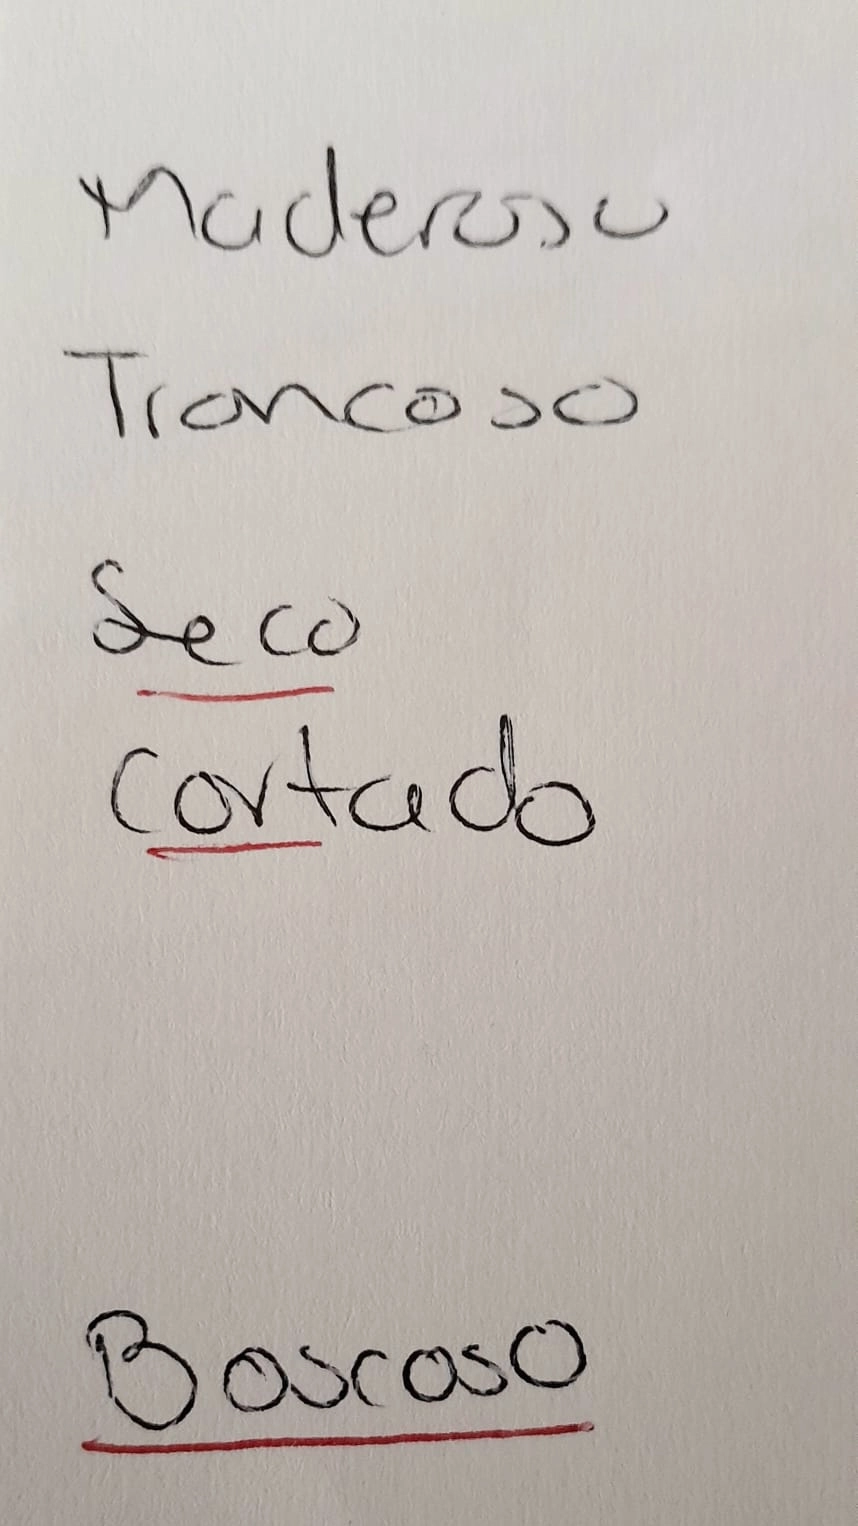 Maderoso
Troncoso
Seco
Cortado
Boscoso